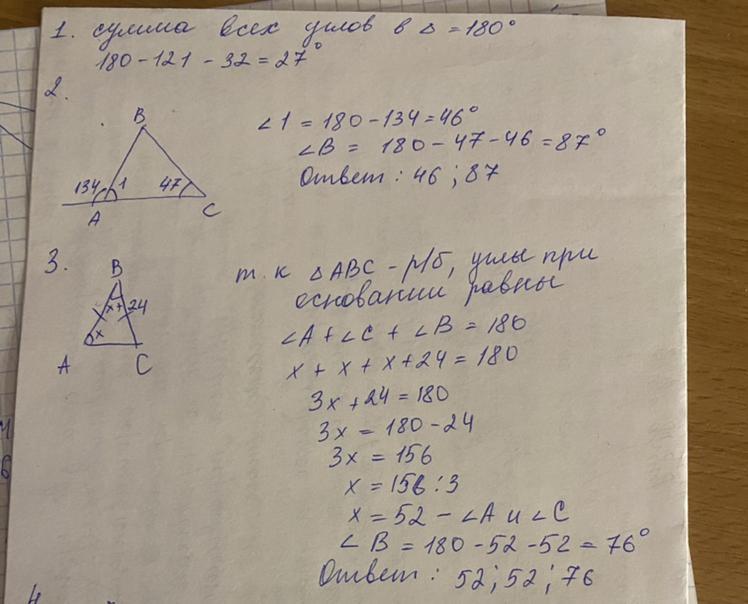 1. сумма всех углов в Δ = 180°
180 - 121 - 32 = 27°
2.
B
134
1
47
A
C
∠1 = 180 - 134 = 46°
∠B = 180 - 47 - 46 = 87°
Ответ: 46; 87
3.
B
x + 24
x
A
C
т.к ΔABC - р/б, углы при
основании равны
∠A + ∠C + ∠B = 180
x + x + x + 24 = 180
3x + 24 = 180
3x = 180 - 24
3x = 156
x = 156 : 3
x = 52 - ∠A и ∠C
∠B = 180 - 52 - 52 = 76°
Ответ: 52; 52; 76
4.